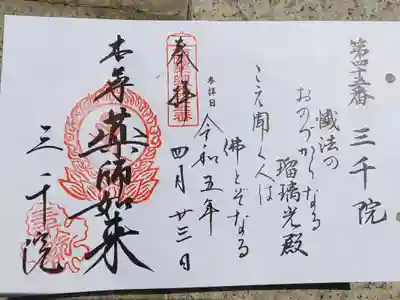 第四十五番 三千院
懺法の
おのづからなる
瑠璃光殿
こえ聞く人は
佛とぞなる
参拝日
令和五年
四月廿三日
奉拝
本尊薬師如来
三千院